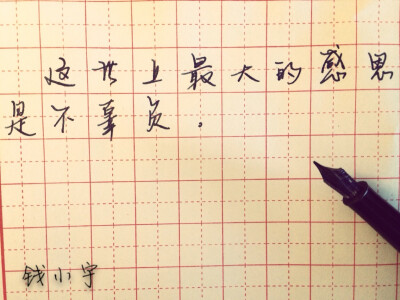 这世上最大的感恩
是不辜负。
钱小宇